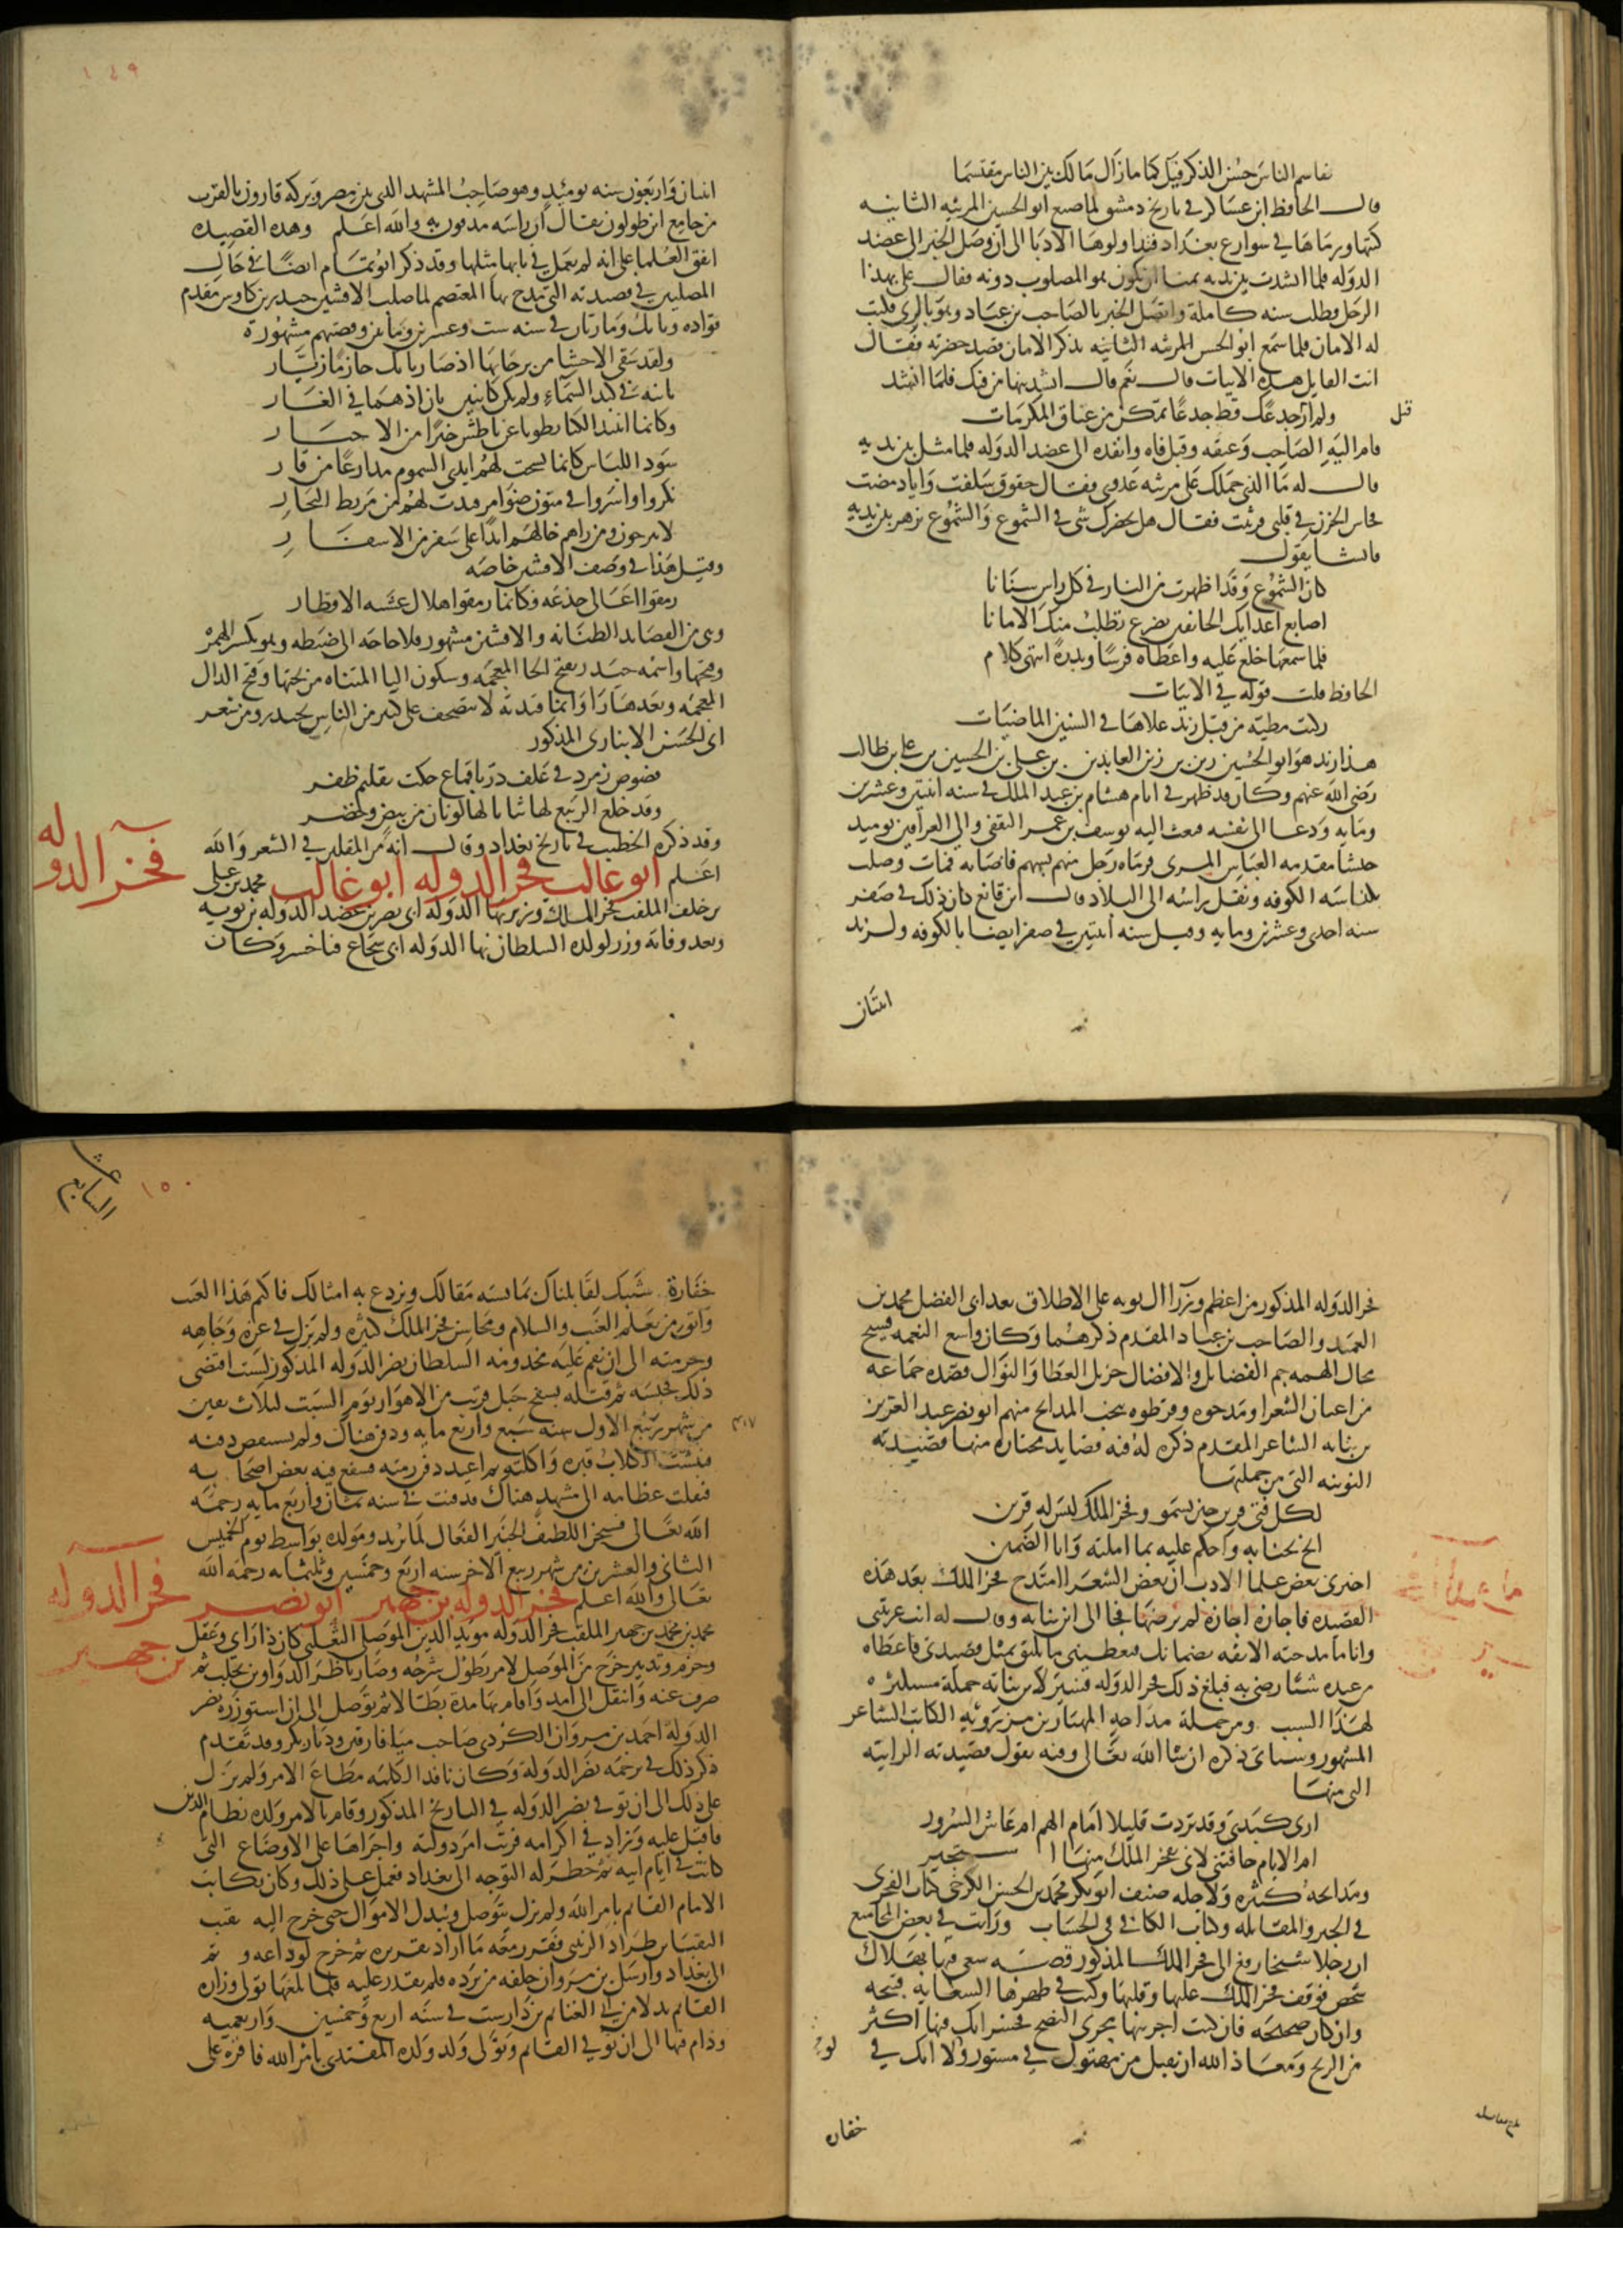 تقاسم الناس حسن الذكر فيك كما مازال مالك بين الناس مقتسما
قال الحافظ ابن عساكر في تاريخ دمشق لما صنع ابو الحسن المرثية الثانية
كتبها ورماها في شوارع بغداد فتداولوها الادبا الى ان وصل الخبر الى عضد
الدوله فلما انشدت بين يديه تمنا ان يكون هو المصلوب دونه فقال علي بهذا
الرجل فطلب سنه كاملة واتصل الخبر بالصاحب بن عباد وهو بالري فكتب
له الامان فلما سمع ابو الحسن المرثيه الثانيه بذكر الامان قصد حضرته فقال
انت القايل هذه الابيات قال نعم قال انشدنيها من فيك فلما انشد
ولم ار قبل جدعك قط جدعا تمكن من عناق المكرمات
قام اليه الصاحب وعانقه وقبل فاه وانفذه الى عضد الدوله فلما مثل بين يديه
قال له ما الذي حملك على مرثيه عدوي فقال حقوق سلفت واياد مضت
فجاش الحزن في قلبي فرثيت فقال هل يحضرك شي في الشموع والشموع تزهر بين يديه
فانشا يقول
كان الشموع وقد اظهرت من النار في كل راس سنانا
اصابع اعدايك الخايفين تضرع تطلب منك الامانا
فلما سمعها خلع عليه واعطاه فرسا وبدرة انتهى كلام
الحافظ قلت قوله في الابيات
ركبت مطية من قبل زيد علاها في السنين الماضيات
هذا زيد هو ابو الحسين زيد بن زين العابدين بن علي بن الحسين بن علي بن ابي طالب
رضى الله عنهم وكان قد ظهر في ايام هشام بن عبد الملك في سنه اثنتين وعشرين
ومايه ودعا الى نفسه فبعث اليه يوسف بن عمر الثقفي والي العراقين يوميد
جيشا مقدمه العباس المري فرماه رجل منهم بسهم فاصابه فمات وصلب
بكناسه الكوفه ونقل راسه الى البلاد قال ابن قانع كان ذلك في صفر
سنه احدى وعشرين ومايه وقيل سنه اثنتين في صفر ايضا بالكوفه ولزيد
اثنتان
١٤٩
اثنتان واربعون سنه يوميد وهو صاحب المشهد الذي بين مصر وبركه قارون بالقرب
من جامع ابن طولون يقال ان راسه مدفون به والله اعلم وهذه القصيده
اتفق العلما على انه لم يعمل في بابها مثلها وقد ذكر ابو تمام ايضا في حال
المصلبين في قصيدته التي مدح بها المعتصم لما صلب الافشين حيدر بن كاوس مقدم
قواده وبابك ومازيار في سنه ست وعشرين ومايتين وقصتهم مشهورة
ولقد شفى الاحشا من برحايها اذ صار بابك جار مازيار
ثانيه في كبد السماء ولم يكن كاثنين ثان اذ هما في الغار
وكانما انتبذا لكيما يطويا عن ناطس خبرا من الاخبار
سود اللباس كانما نسجت لهم ايدي السموم مدارعا من قار
بكروا واسروا في متون ضوامر قيدت لهم من مربط النجار
لا يبرحون ومن راهم خالهم ابدا على سفر من الاسفار
وقيل هذا في وصف الافشين خاصه
رمقوا اعالي جذعه فكانما رمقوا هلال عشيه الافطار
وهي من القصايد الطنانه والافشين مشهور فلا حاجه الى ضبطه وهو بكسر الهمزه
وفتحها واسمه حيدر بفتح الحا المعجمه وسكون اليا المثناه من تحتها وفتح الدال
المعجمه وبعدها را وانما قيدته لانه يتصحف على كثير من الناس بحيدر ومن شعر
ابي الحسن الانباري المذكور
فصوص زمرد في غلف در باقماع حكت تقليم ظفر
وقد خلع الربيع لها ثيابا لها لونان من بيض وخضر
وقد ذكره الخطيب في تاريخ بغداد وقال انه من المقلين في الشعر والله
اعلم ابو غالب فخر الدوله ابو غالب محمد بن علي
فخر الدوله
بن خلف الملقب فخر الملك وزير بها الدوله ابي نصر بن عضد الدوله بن بويه
وبعد وفاته وزر لولده السلطان بها الدوله ابي شجاع فناخسرو وكان
فخر الدوله المذكور من اعظم وزرا ال بويه على الاطلاق بعد ابي الفضل محمد بن
العميد والصاحب بن عباد المقدم ذكرهما وكان واسع النعمه فسيح
مجال الهمه جم الفضايل والافضال جزيل العطا والنوال قصده جماعه
من اعيان الشعرا ومدحوه وقرظوه بنخب المدايح منهم ابو نصر عبد العزيز
بن نباته الشاعر المقدم ذكره له فيه قصايد مختاره منها قصيدته
النونيه التي من جملتها
لكل فتى قرين حين يسمو وفخر الملك ليس له قرين
انخ بجنابه واحكم عليه بما املته وانا الضمين
اخبرني بعض علما الادب ان بعض الشعرا امتدح فخر الملك بعد هذه
القصيده فاجازه اجازه لم يرضها فجا الى ابن نباته وقال له انت غريتني
وانا ما مدحته الا ثقه بضمانك فتعطيني ما يليق بمثل قصيدتي فاعطاه
من عنده شيئا رضي به فبلغ ذلك فخر الدوله فسير لابن نباته جمله مستكثره
لهذا السبب ومن جملة مداحه المهيار بن مرزويه الكاتب الشاعر
المشهور وسياتي ذكره ان شا الله تعالى وفيه يقول قصيدته الراييه
التي منها
ارى كبدي وقد بردت قليلا امات الهم ام عاش السرور
ام الايام خافتني لاني بفخر الملك منها استجير
ومدايحه كثيره ولاجله صنف ابو بكر محمد بن الحسن الكرخي كتاب الفخري
في الجبر والمقابله وكتاب الكافي في الحساب ورايت في بعض المجاميع
ان رجلا شيخا رفع الى فخر الملك المذكور قصة سعى فيها بهلاك
شخص فوقف فخر الملك عليها وقلبها وكتب في ظهرها السعايه قبيحه
وان كان صحيحه فان كنت اجريتها مجرى النصح فخسرانك فيها اكثر
من الربح ومعاذ الله ان نقبل من مهتوك في مستور ولولا انك في
خفاره
السابع عشر
١٥٠
خفارة شيبك لقابلناك بما يشبه مقالك ونردع به امثالك فاكتم هذا العيب
واتق من يعلم الغيب والسلام ومحاسن فخر الملك كثيره ولم يزل في عزه وجاهه
وحرمته الى ان نقم عليه مخدومه السلطان فخر الدوله المذكور لسبب اقتضى
ذلك فحبسه ثم قتله بسفح جبل قريب من الاهواز يوم السبت لثلاث بقين
من شهر ربيع الاول سنه سبع واربع مايه ودفن هناك ولم يستقص دفنه
٤٠٧
فنبشت الكلاب قبره واكلته ثم اعيد دفن رمته فشفع فيه بعض اصحابه
فنقلت عظامه الى مشهد هناك فدفنت في سنه ثمان واربع مايه رحمه
الله تعالى فسبحن اللطيف الخبير الفعال لما يريد ومولده بواسط يوم الخميس
الثاني والعشرين من شهر ربيع الاخر سنه اربع وخمسين وثلثمايه رحمه الله
تعالى والله اعلم فخر الدوله بن جهير ابو نصر
فخر الدوله بن جهير
محمد بن محمد بن جهير الملقب فخر الدوله مويد الدين الموصلي الثعلبي كان ذا راي وعقل
وحزم وتدبير خرج من الموصل لامر يطول شرحه وصار ناظر الدواوين بحلب ثم
صرف عنه وانتقل الى امد واقام بها مدة بطالا ثم توصل الى ان استوزره نصر
الدوله احمد بن مروان الكردي صاحب ميافارقين وديار بكر وقد تقدم
ذكر ذلك في ترجمة نصر الدوله وكان نافذ الكلمه مطاع الامر ولم يزل
على ذلك الى ان توفي نصر الدوله في التاريخ المذكور وقام بالامر ولده نظام الدين
فاقبل عليه وزاد في اكرامه فرتب امر دولته واجراها على الاوضاع التي
كانت في ايام ابيه ثم خطر له التوجه الى بغداد فعمل على ذلك وكان يكاتب
الامام القايم بامر الله ولم يزل يتوصل ويبذل الاموال حتى خرج اليه نقيب
النقبا بن طراد الزينبي فقرر معه ما اراد تقريره ثم خرج لوداعه وتم
الى بغداد وارسل بن مروان خلفه من يرده فلم يقدر عليه فلما بلغها تولى وزاره
القايم بدلا من ابي الغنايم بن دارست في سنه اربع وخمسين واربعميه
ودام فيها الى ان توفي القايم وتولى ولد ولده المقتدي بامر الله فاقره على